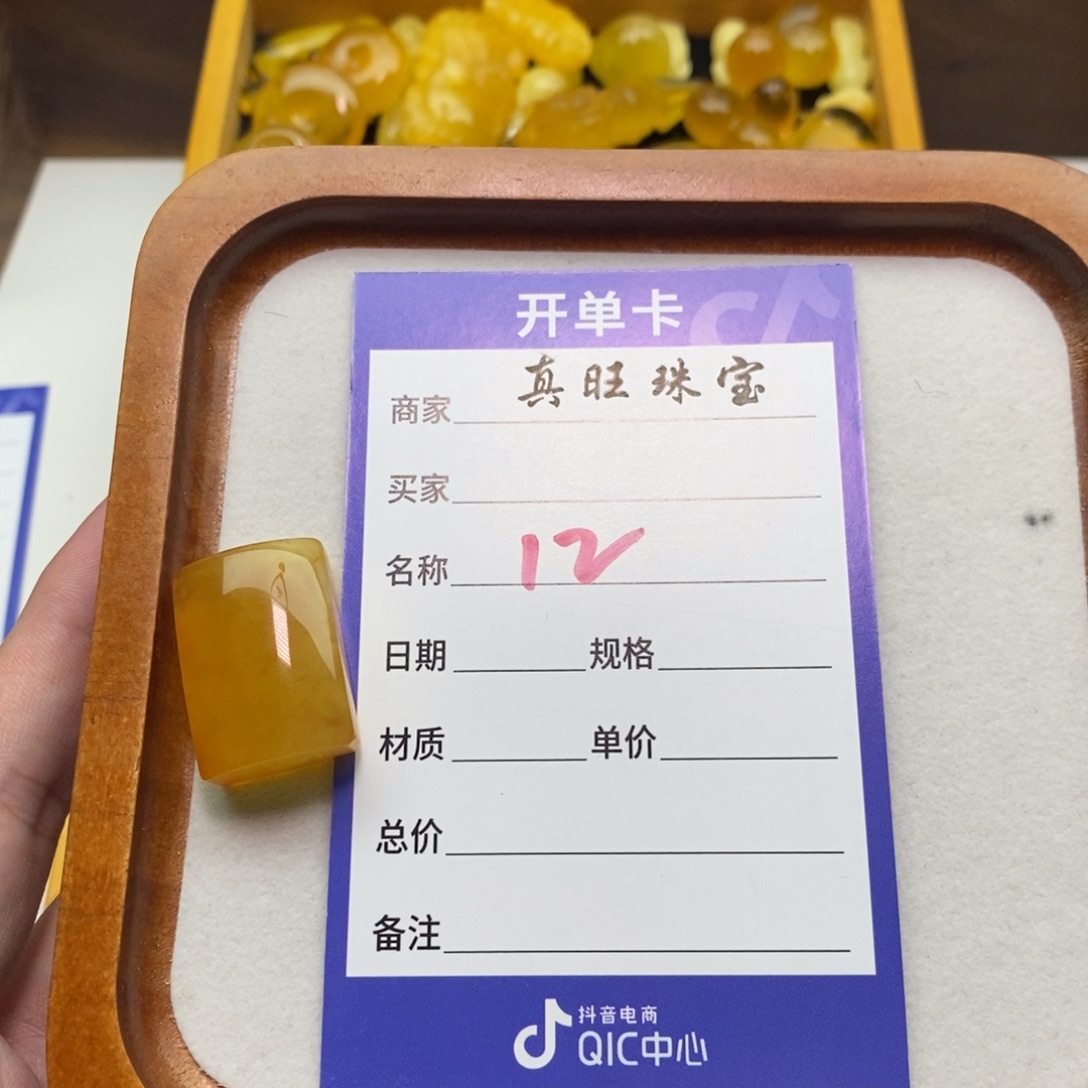 开单卡
商家 真旺珠宝
买家
名称 12
日期 规格
材质 单价
总价
备注
抖音电商
QIC中心